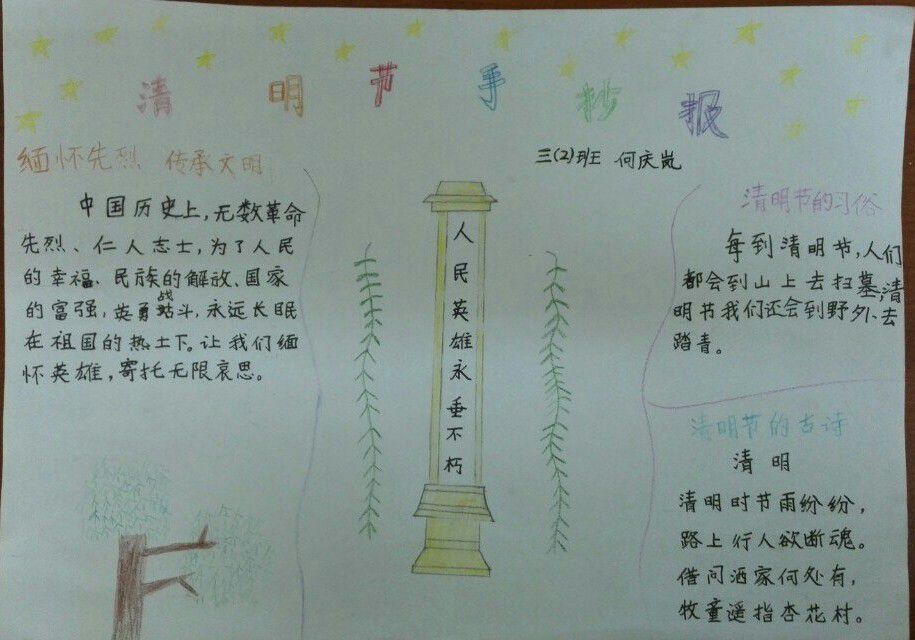 清明节手抄报
三(2)班 何庆岚
缅怀先烈 传承文明
中国历史上,无数革命
先烈、仁人志士,为了人民
的幸福、民族的解放、国家
的富强,英勇战斗,永远长眠
在祖国的热土下。让我们缅
怀英雄,寄托无限哀思。
人民英雄永垂不朽
清明节的习俗
每到清明节,人们
都会到山上去扫墓,清
明节我们还会到野外去
踏青。
清明节的古诗
清明
清明时节雨纷纷,
路上行人欲断魂。
借问酒家何处有,
牧童遥指杏花村。